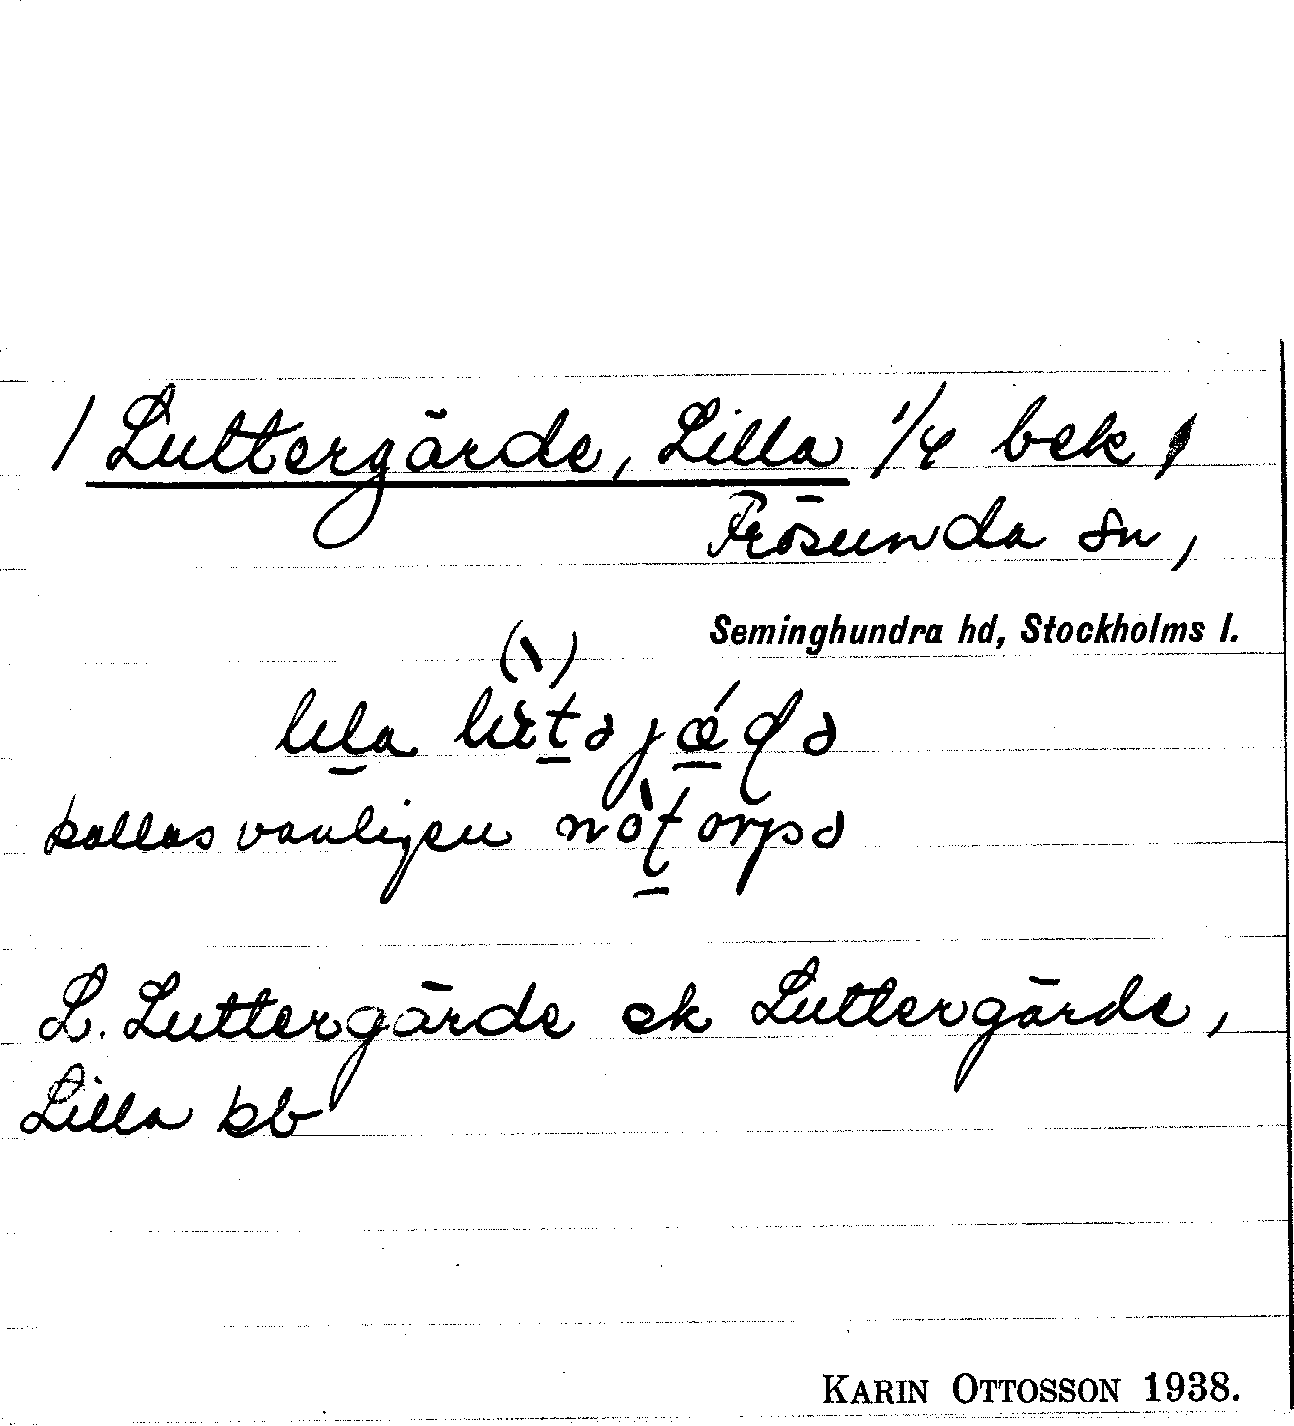 / Luttergärde, Lilla 1/4 bek
Frösunda sn,
Seminghundra hd, Stockholms l.
lila
kallas vanligen
L. Luttergärde ek Luttergärde,
Lilla kb
KARIN OTTOSSON 1938.